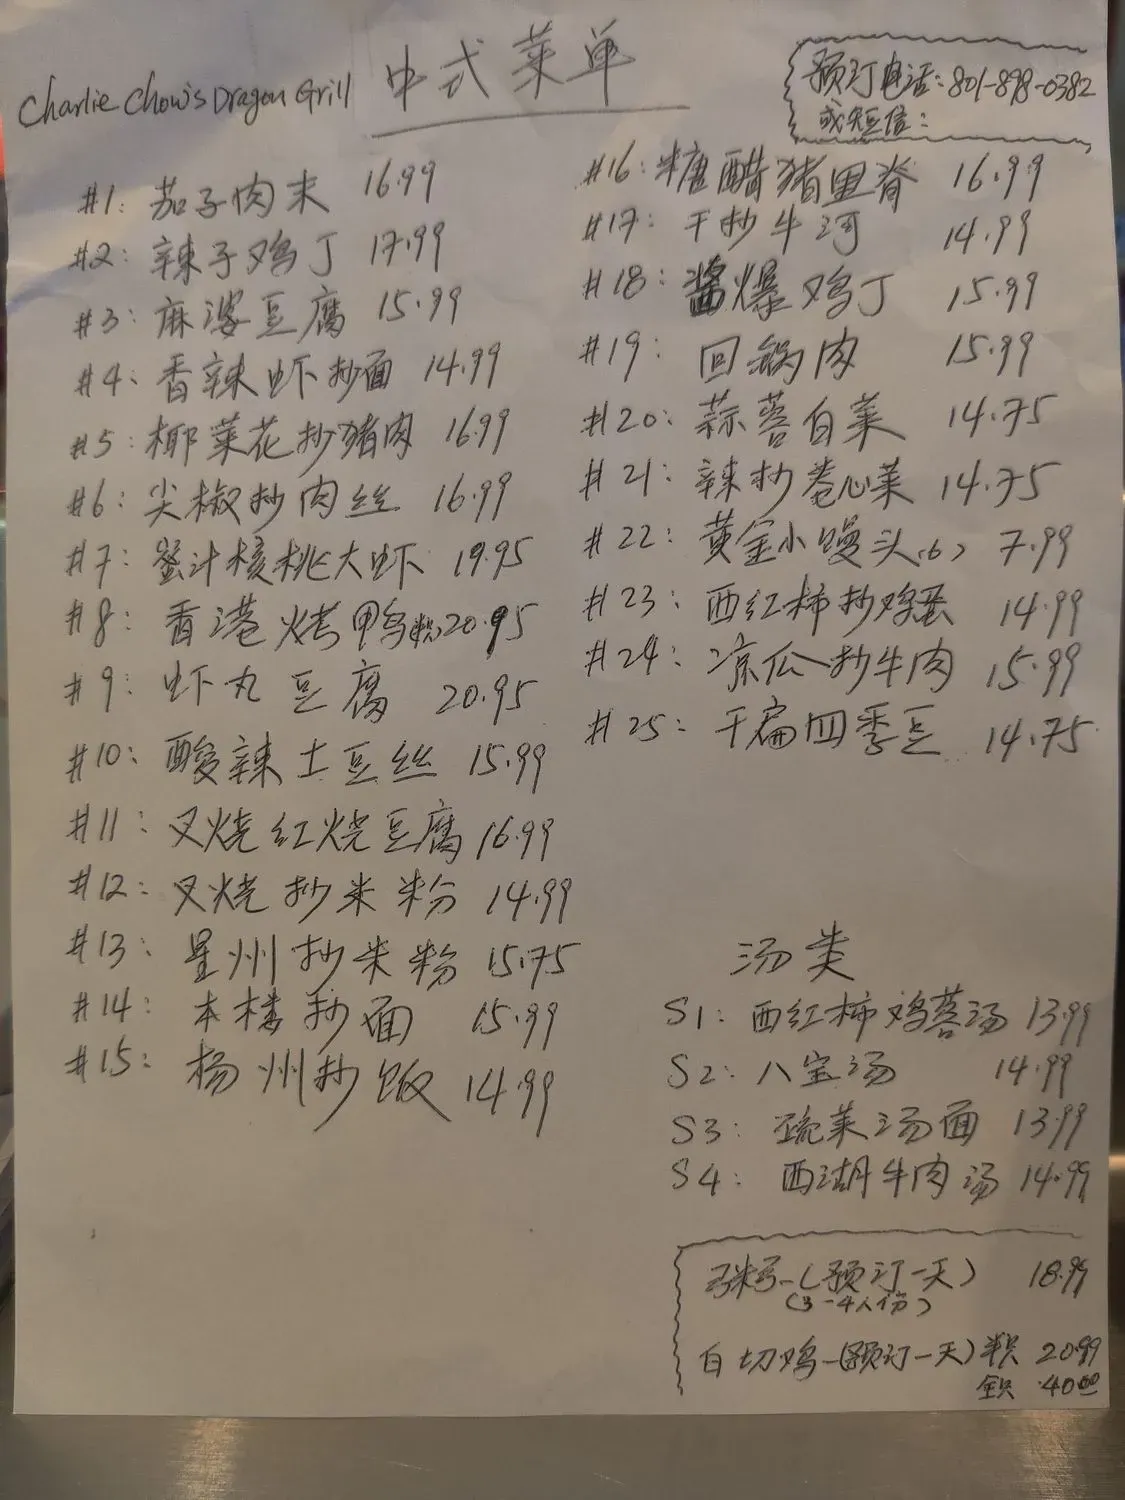 Charlie Chow's Dragon Grill 中式菜单
预订电话:801-898-0382
或短信:
#1: 茄子肉末 16.99
#2: 辣子鸡丁 17.99
#3: 麻婆豆腐 15.99
#4: 香辣虾炒面 14.99
#5: 椰菜花炒猪肉 16.99
#6: 尖椒炒肉丝 16.99
#7: 蜜汁核桃大虾 19.95
#8: 香港烤鸭 20.95
#9: 虾丸豆腐 20.95
#10: 酸辣土豆丝 15.99
#11: 叉烧红烧豆腐 16.99
#12: 叉烧炒米粉 14.99
#13: 星州炒米粉 15.75
#14: 本楼炒面 15.99
#15: 杨州炒饭 14.99
#16: 糖醋猪里脊 16.99
#17: 干炒牛河 14.99
#18: 酱爆鸡丁 15.99
#19: 回锅肉 15.99
#20: 蒜蓉白菜 14.75
#21: 辣炒卷心菜 14.75
#22: 黄金小馒头(6) 7.99
#23: 西红柿炒鸡蛋 14.99
#24: 凉瓜炒牛肉 15.99
#25: 干扁四季豆 14.75
汤类
S1: 西红柿鸡蓉汤 13.99
S2: 八宝汤 14.99
S3: 蔬菜汤面 13.99
S4: 西湖牛肉汤 14.99
粥-(预订一天) 18.99
(3-4人份)
白切鸡-(预订一天) 半只 20.99
全只 40.00